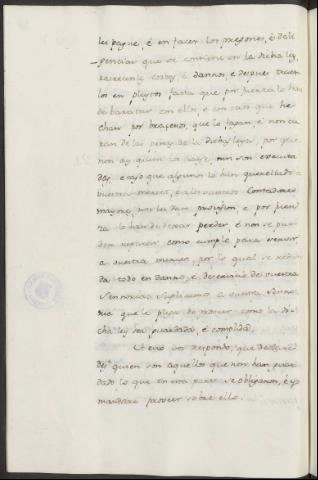 les pague, é en facer los pregones, é dili
-genciar que se contiene en la dicha ley,
é dannos, e despues traen
los en pleytos fasta que por fuerza lo han
de baratar con ellos, e con esto que he
chan por que lo fagan, é non cu
ran de las penas de la dicha ley, por que
non ay quien las nin son executa
das, e caso que algunos se han querellado á
vuestra merced, é a los vuestros Contadores
mayores, non les dan provision, e por fuer
za lo han de dexar perder, é non se pue
den reparar como cumple para servir
a vuestra merced, por lo qual se redun
da todo en danno, e deservicio de vuestra
Sennoria: suplicamos a vuestra Senno
ria que le plega de mandar como la di
cha ley sea guardada, é complida.
A esto vos respondo, que declare
des quien son aquellos que non han guar
dado lo que en esta parte se obligaron, é yo
mandaré proveer sobre ello.